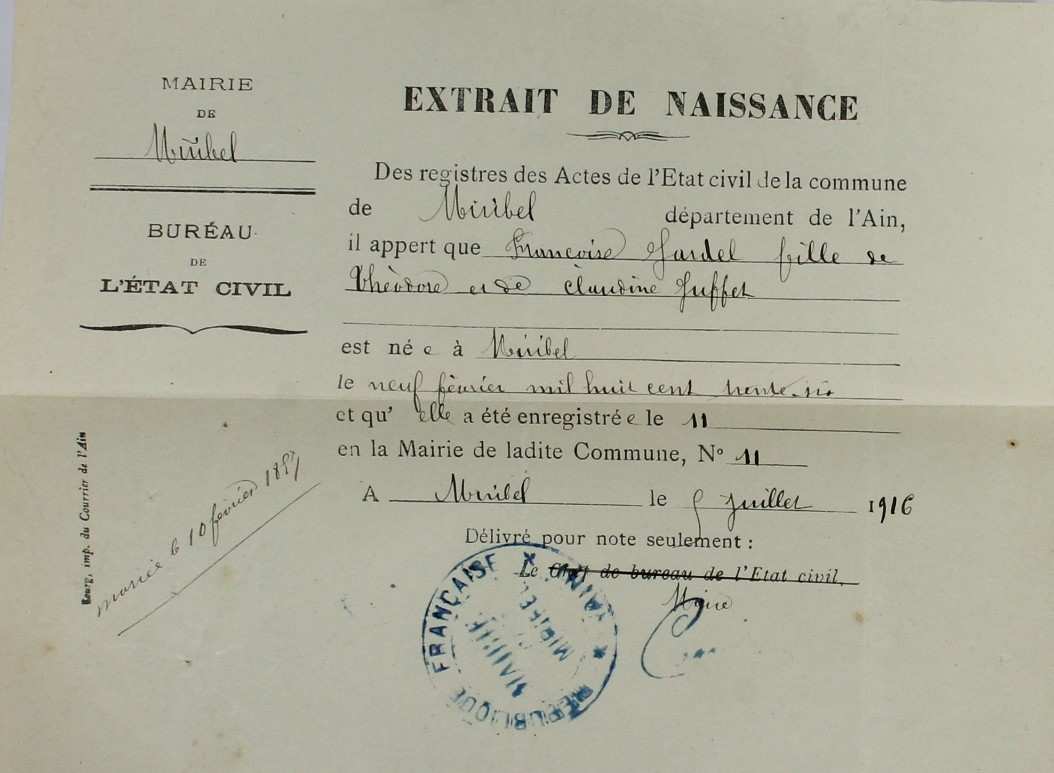 MAIRIE
DE
Miribel
BURÉAU
DE
L'ÉTAT CIVIL
EXTRAIT DE NAISSANCE
Des registres des Actes de l'Etat civil de la commune
de Miribel département de l'Ain,
il appert que Françoise Gardel fille de
Théodore et de Claudine Juffet
est né e à Miribel
le neuf février mil huit cent trente six
et qu' elle a été enregistré e le 11
en la Mairie de ladite Commune, N° 11
A Miribel le 5 juillet 1916
Délivré pour note seulement :
Le Chef de bureau de l'Etat civil,
Maire
RÉPUBLIQUE FRANÇAISE
MAIRIE
MIRIBEL
(AIN)
Bourg, imp. du Courrier de l'Ain
mariée le 10 février 1857